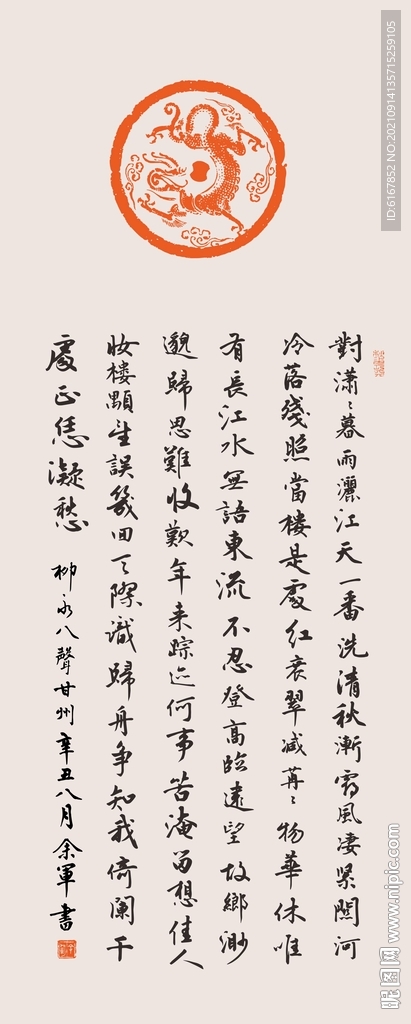 對瀟々暮雨灑江天一番洗清秋漸霜風凄緊關河
冷落殘照當樓是處紅衰翠减苒々物華休唯
有長江水無語東流不忍登高臨遠望故鄉渺
邈歸思難收歎年来踪迹何事苦淹留想佳人
妝樓顒望誤幾回天際識歸舟争知我倚闌干
處正恁凝愁
柳永八聲甘州辛丑八月余軍書
ID:6167852 NO:20210914135715259105
昵图网 www.nipic.com